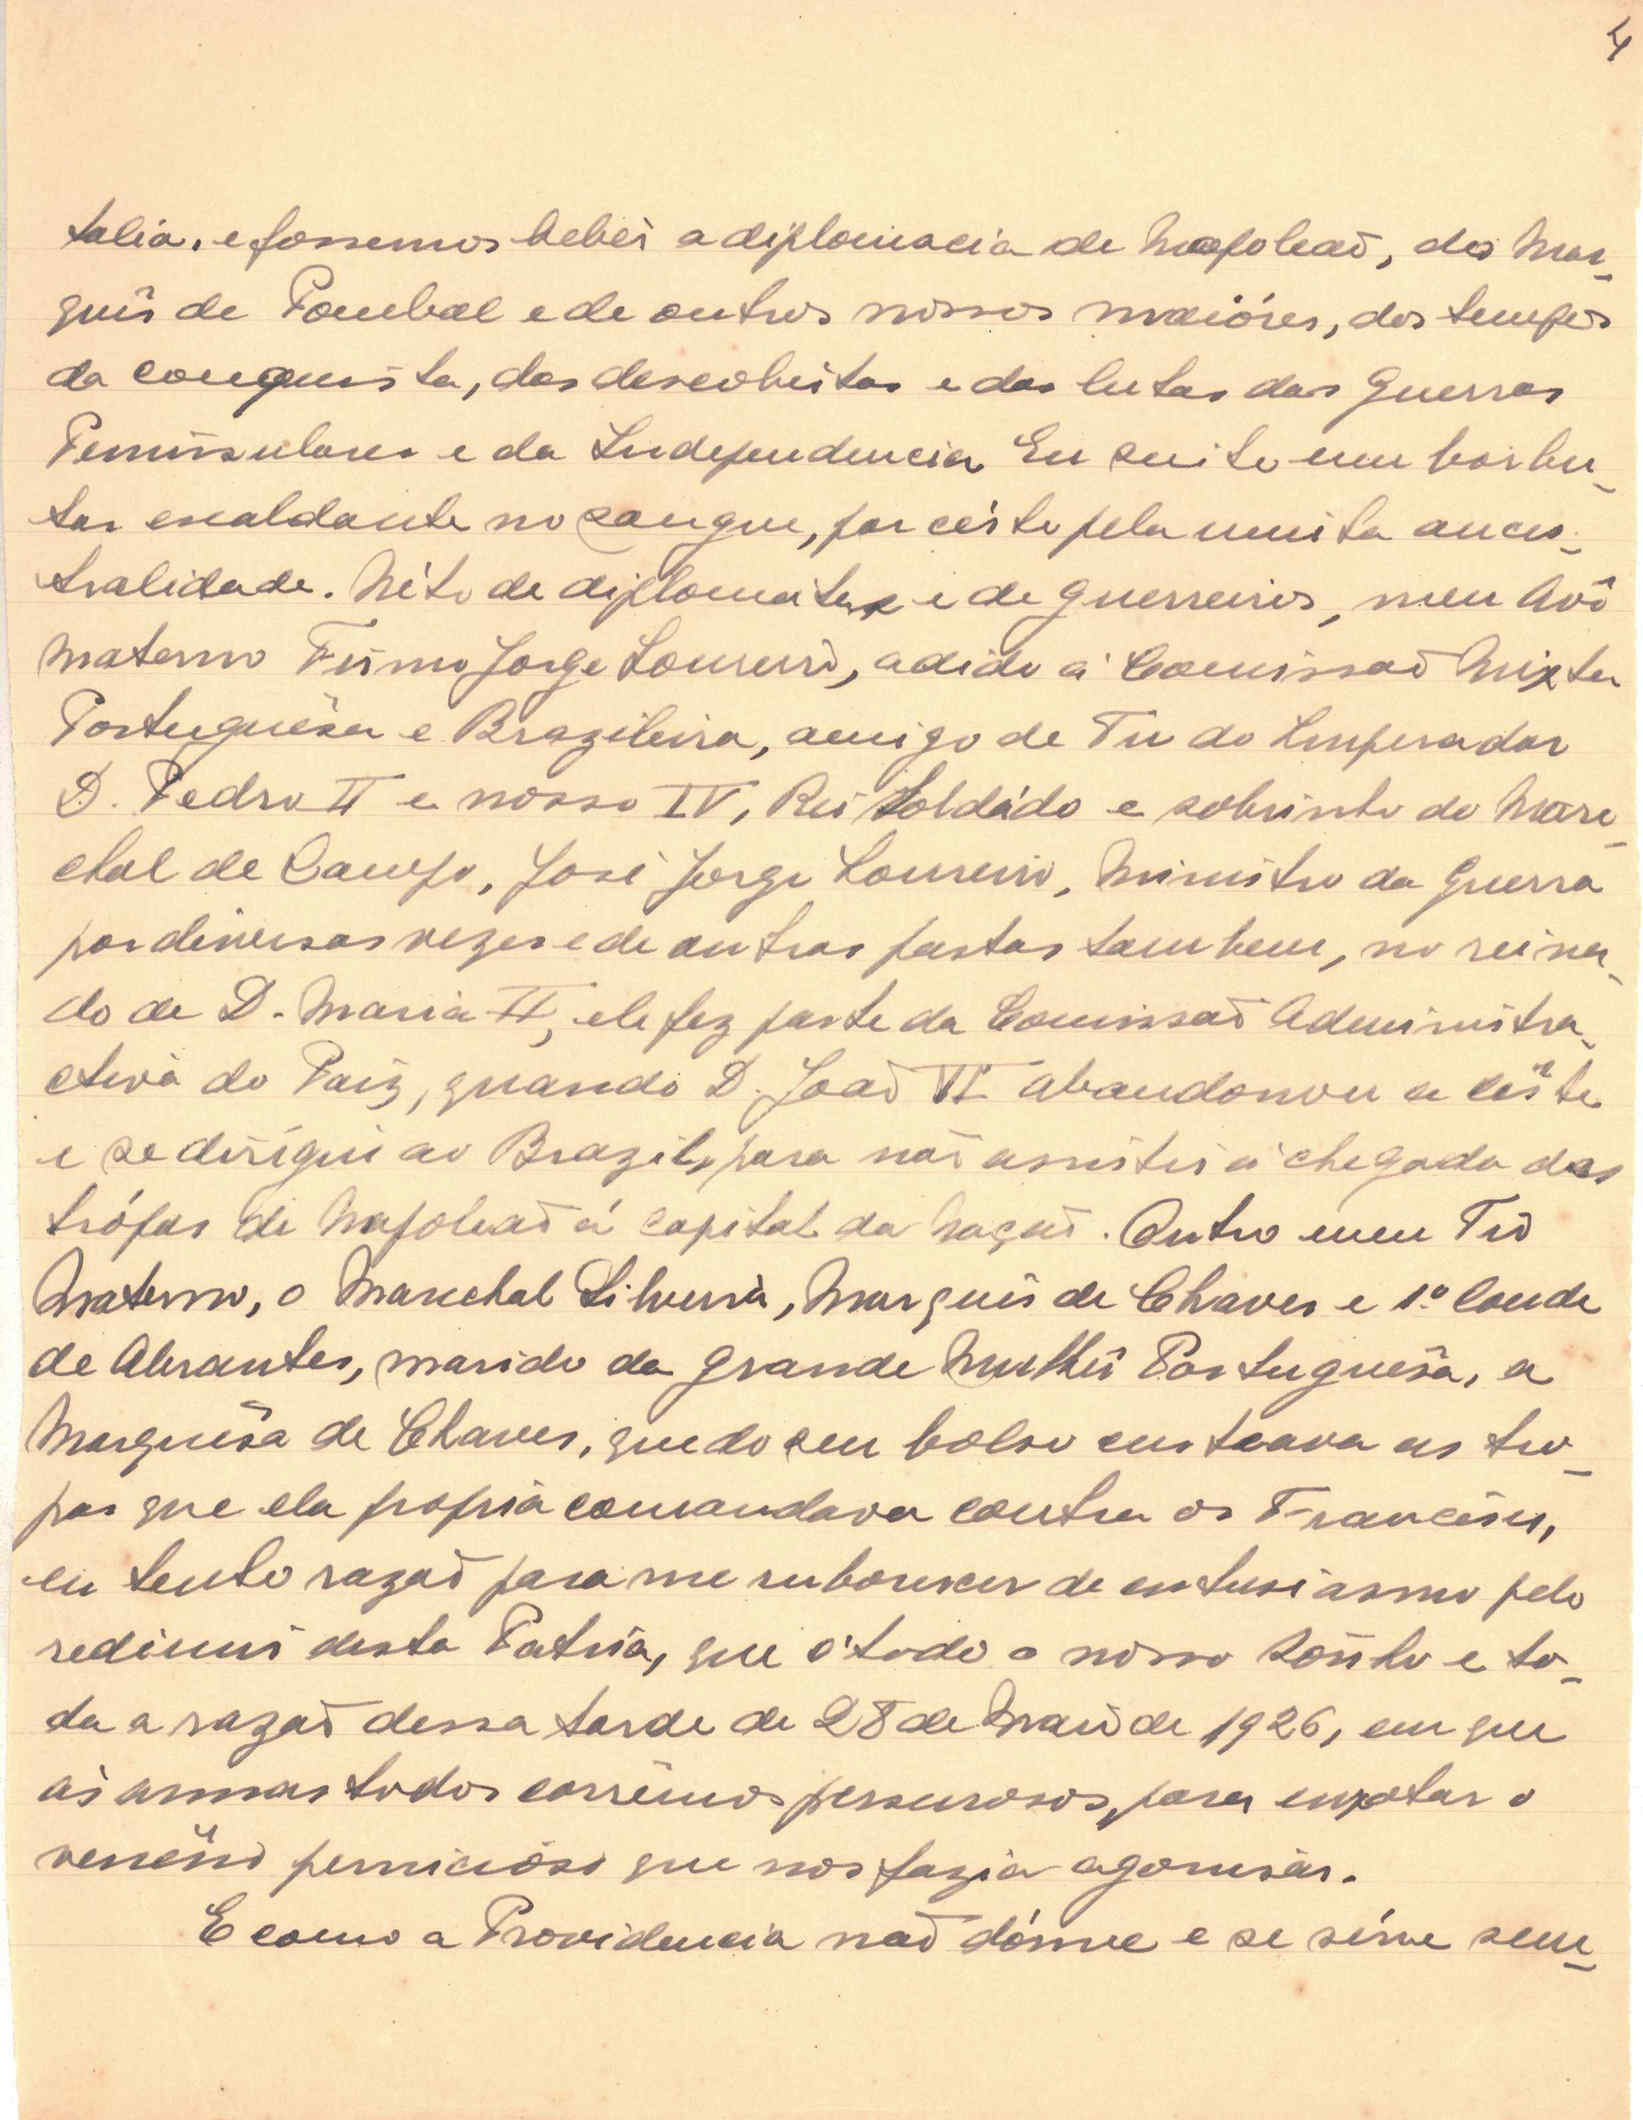 4
talia, e fossemos bebêr a diplomacia de Napoleaõ, do Mar-
quês de Pombal e de outros nossos maióres, dos tempos
da conquista, das descobertas e das lutas das Guerras
Peninsulares e da Independencia. Eu sinto um borbu-
tar escaldante no sangue, por cérto pela minha ances-
tralidade. Néto de diplomatas e de guerreiros, meu Avô
Materno Firmo Jorge Loureiro, adido á Comissaõ Mixta
Portuguêsa e Brazileira, amigo de Tu do Imperador
D. Pedro II e nosso IV, Rei Soldádo e sobrinho do Mare-
chal de Campo, José Jorge Loureiro, Ministro da Guerra
por diversas vezes e de outras pastas tambem, no reina-
do de D. Maria II, ele fez parte da Comissaõ Administra-
ctiva do Paiz, quando D. Joaõ VI abandonou a côrte
e se dirígiu ao Brazil, para naõ assistir á chegada das
trópas de Napoleaõ á capital da Naçaõ. Outro meu Tio
Materno, o Marechal Silveira, Marquês de Chaves e 1º Conde
de Abrantes, marido da grande Mulhér Portuguêsa, a
Marquêsa de Chaves, que do seu bolso custeava as tro-
pas que ela propria comandava contra os Francêses,
eu tenho razaõ para me ruborescer de entusiasmo pelo
redimir desta Patria, que é todo o nosso sonho e to-
da a razaõ dessa tarde de 28 de Maio de 1926, em que
ás armas todos corrêmos pressurosos, para enxotar o
venêno pernicióso que nos fazia agonisar.
E como a Providencia naõ dórme e se sérve sem-